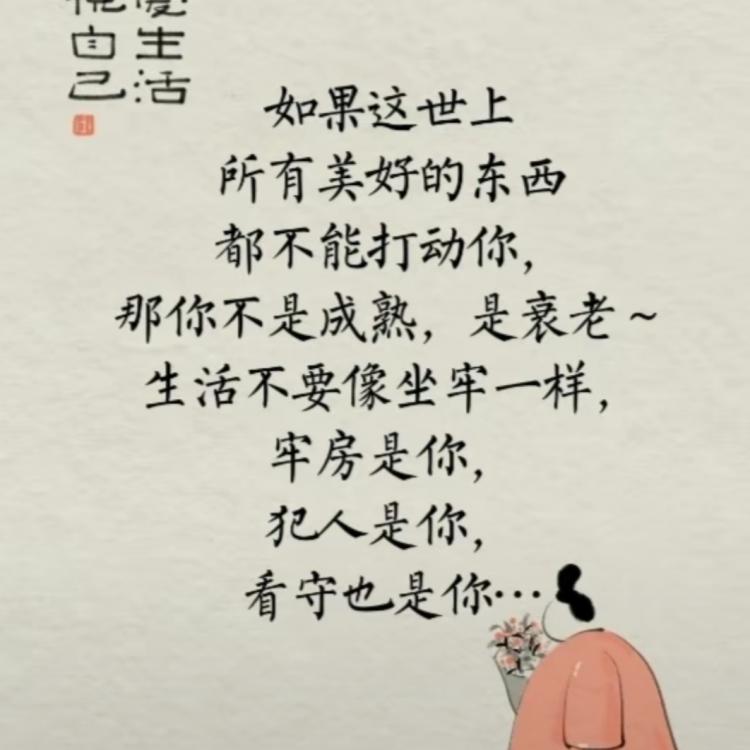 生活
自己
如果这世上
所有美好的东西
都不能打动你,
那你不是成熟, 是衰老~
生活不要像坐牢一样,
牢房是你,
犯人是你,
看守也是你…